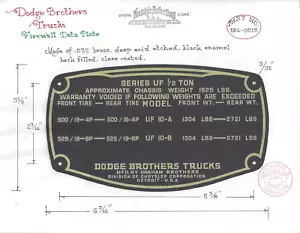 Dodge Brothers
Trucks
Firewall Data Plate
made of .032 brass, deep acid etched, black enamel
back filled, clear coated.
SERIES UF 1/2 TON
APPROXIMATE CHASSIS WEIGHT 1925 LBS.
WARRANTY VOIDED IF FOLLOWING WEIGHTS ARE EXCEEDED
FRONT TIRE — REAR TIRE MODEL FRONT WT. — REAR WT.
500/19-4P — 500/19-4P UF 10-A 1304 LBS — 2721 LBS
525/19-6P — 525/19-6P UF 10-B 1304 LBS — 2721 LBS
DODGE BROTHERS TRUCKS
MFD. BY GRAHAM BROTHERS
DIVISION OF CHRYSLER CORPORATION
DETROIT - U.S.A.